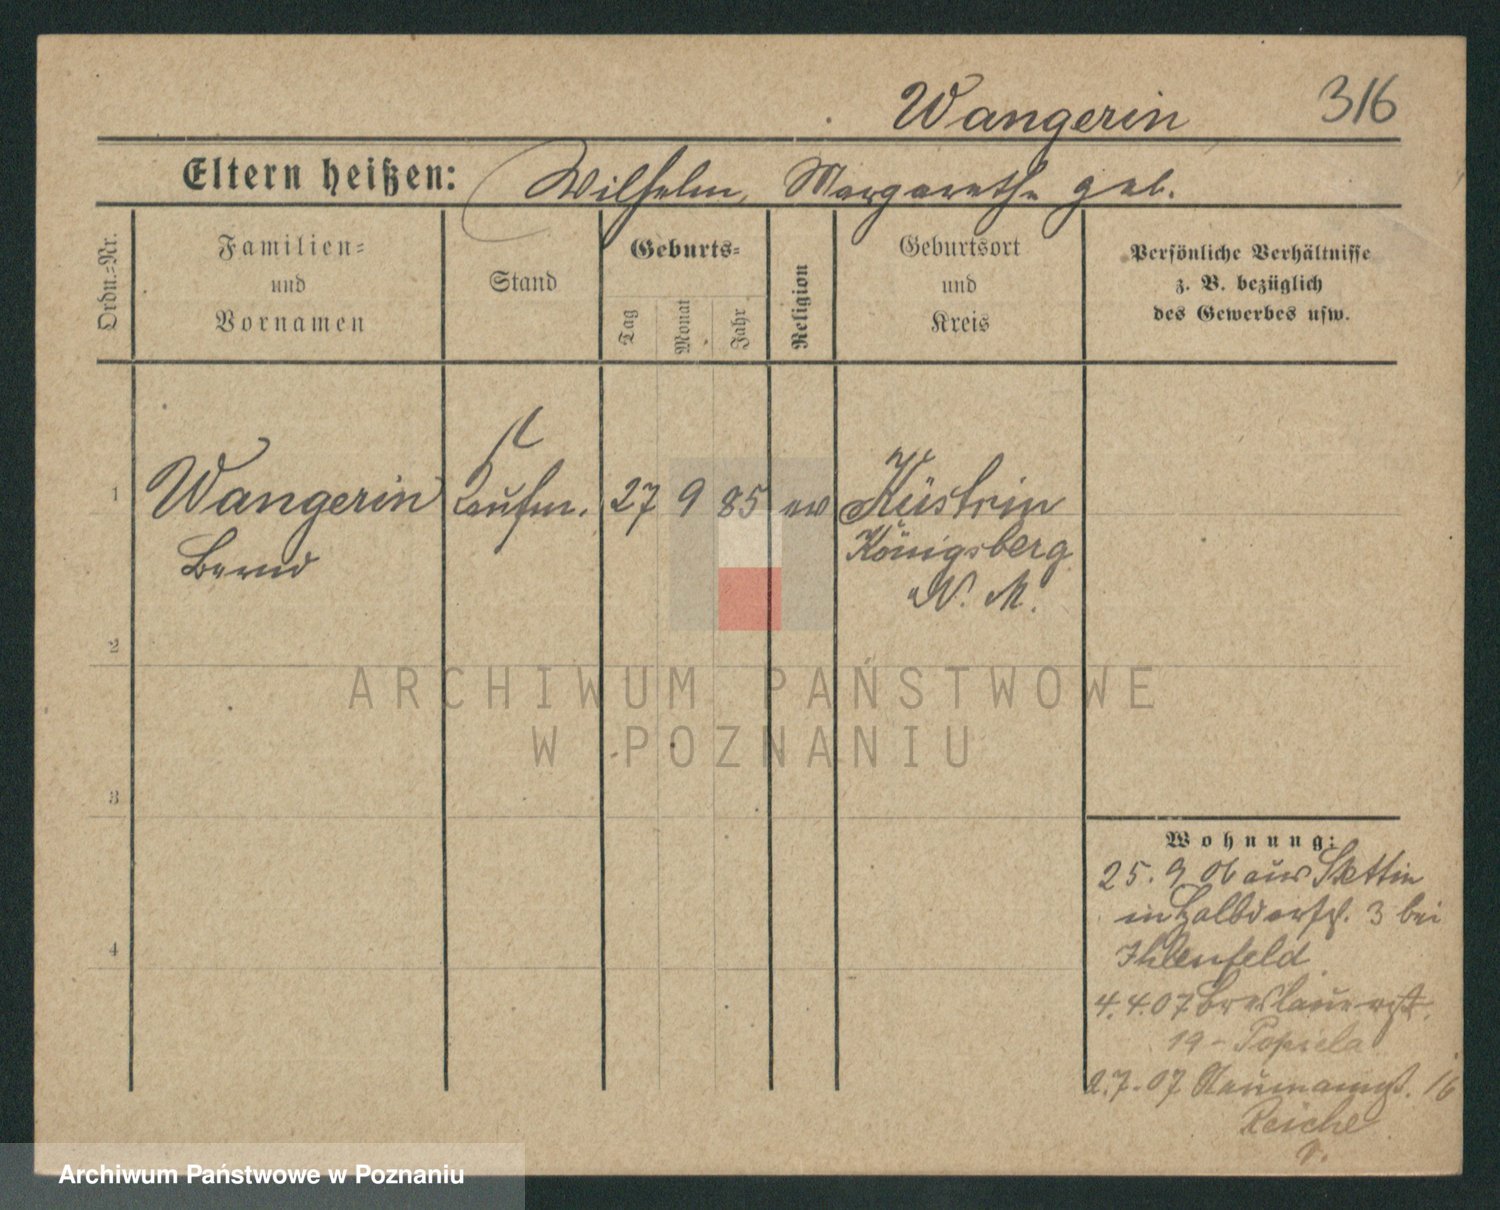 Wangerin 316
Eltern heißen: Wilhelm, Margarethe geb.
Ordn.=Nr.
Familien=
und
Vornamen
Stand
Geburts=
Tag
Monat
Jahr
Religion
Geburtsort
und
Kreis
Persönliche Verhältnisse
z. B. bezüglich
des Gewerbes usw.
1 Wangerin Kaufm. 27 9 85 ev Küstrin
Bernd Königsberg
N. M.
2
3
4
Wohnung:
25. 9 06 aus Stettin
in Halbdorfstr. 3 bei
Ihlenfeld
4. 4. 07 Breslauerstr.
19 - Popiela
2. 7. 07 Naumannstr. 16
Reiche
ARCHIWUM PAŃSTWOWE
W POZNANIU
Archiwum Państwowe w Poznaniu